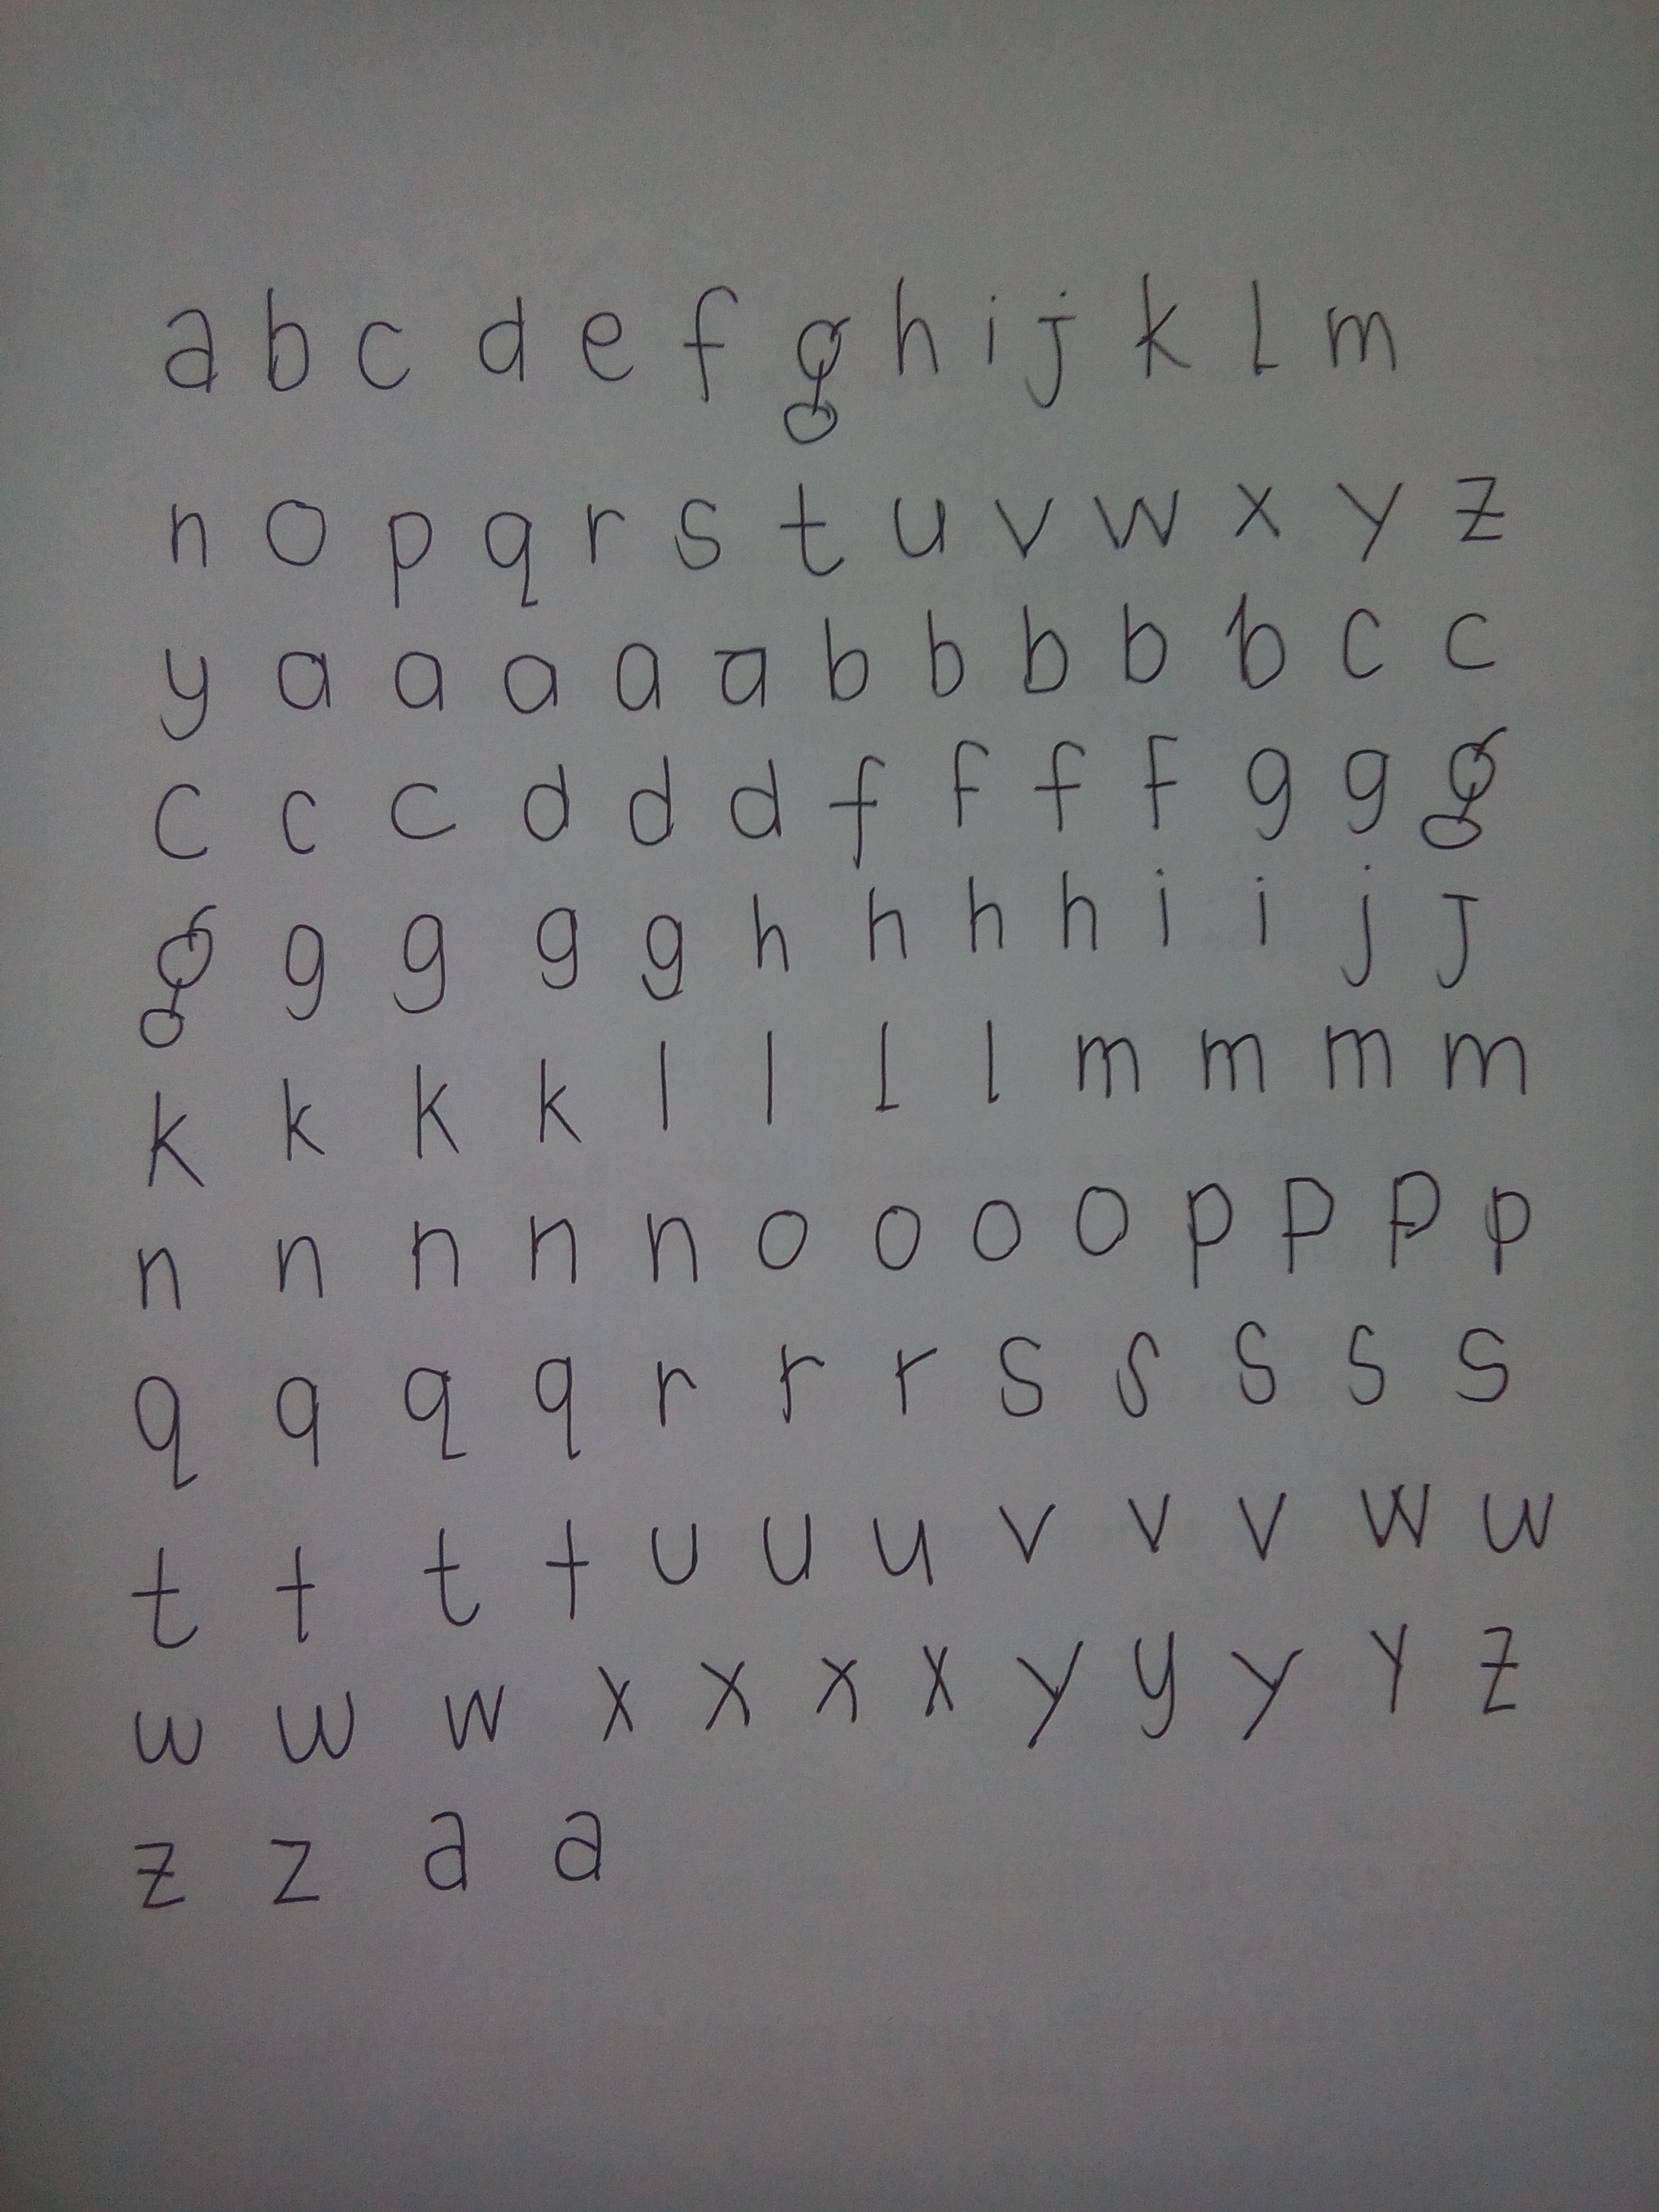 a b c d e f g h i j k l m
n o p q r s t u v w x y z
y a a a a a b b b b b c c
c c c d d d f f f f g g g
g g g g g h h h h i i j J
k k k k l l l l m m m m
n n n n n o o o o p p p p
q q q q r r r s s s s s
t t t t u u u v v v w w
w w w x x x x y y y y z
z z a a